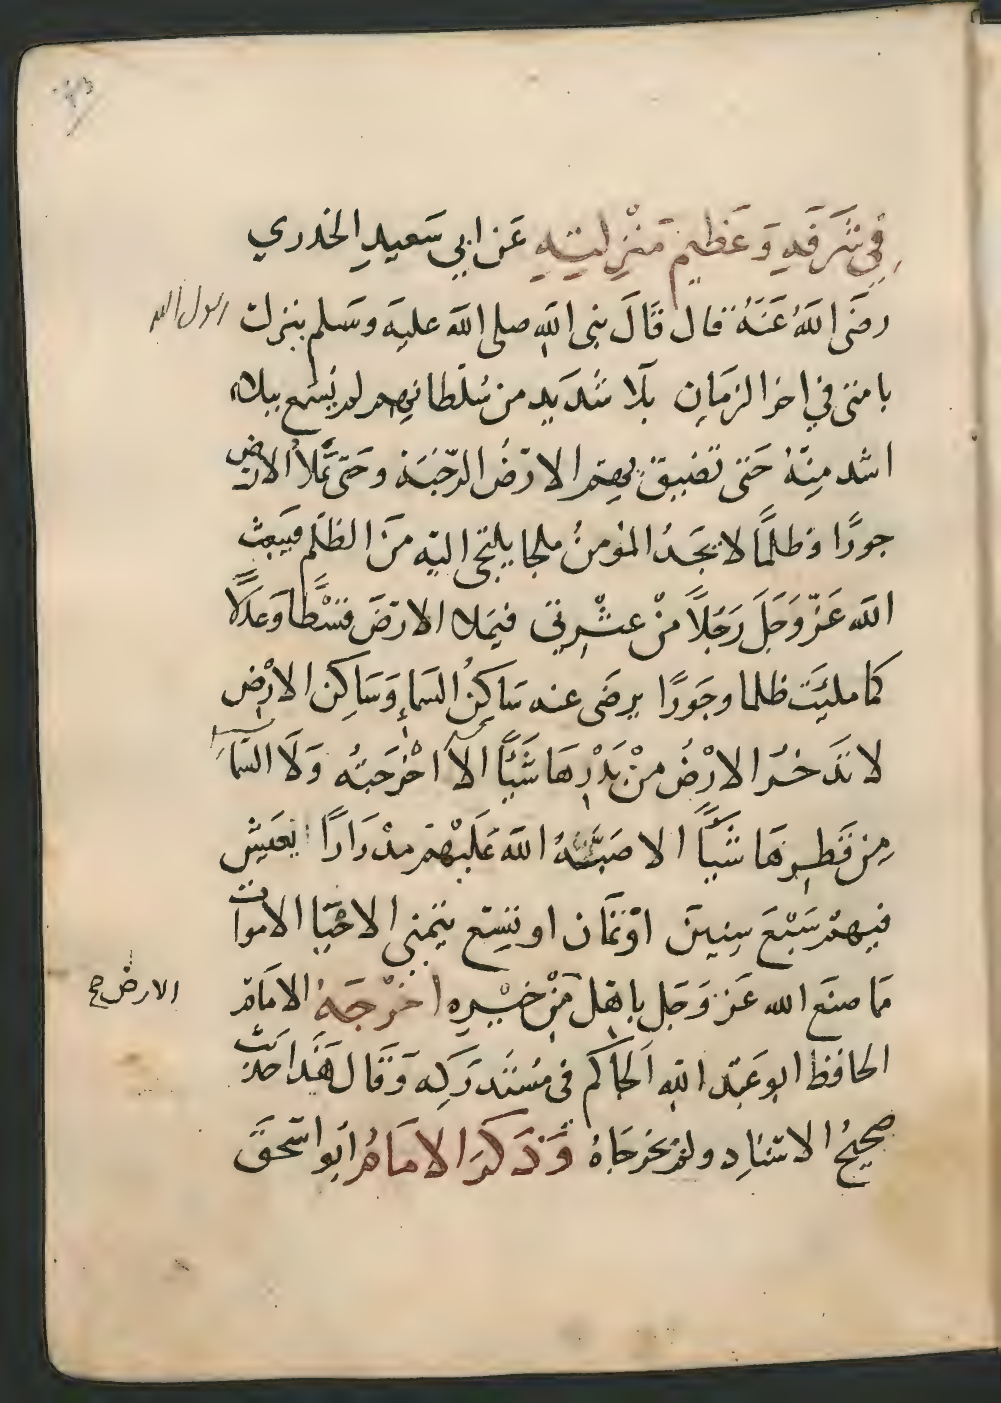 في شَرَفِهِ وَعَظِيمِ مَنْزِلَتِهِ عَن ابي سَعيدِ الخدري
رضَى اللهُ عَنَهُ قال قَالَ نبى الله صلى الله عليَه وسَلم ينزل
رسول الله
بامتى في اخر الزمَانِ بلَا شَديَد من سُلطانهم لم يُسمع ببلاء
اشد مِنهُ حَتى تَضيق بهم الارَضُ الرحْبَة وحَتى تملأ الارض
جورًا وظلمًا لا يجَدُ المؤمنُ ملجا يلتجى اليَه منَ الظلم فيَبعث
الله عَزّ وَجَلَ رَجَلاً منْ عتْرتي فيَملا الارَضَ قسْطًا وَعدلًا
كما ملئَت ظلما وجَورًا يرضَى عنه سَاكِنُ السَماءِ وَسَاكِن الارْضِ
لا تدَخرُ الارْضُ منْ بَذْرِهَا شَيأً الا اخْرَجَتهُ وَلَا السَّمآء
مِن قَطرِهَا شَيأً الا صَبّهُ الله عَلَيْهمْ مدْرَارًا يَعَيش
فيهمْ سَبْعَ سِنينَ اوْ ثمَان او تِسَع يتمنى الاحْيَا الاموات
مَا صنَع الله عَز وَجَل باهَل مِنْ خيْره اخْرَجَهُ الامَامَ
الارض صح
الحافظ ابو عَبَد الله الحَاكم فى مسْتَدرَكِه وَقَال هَذا حديَث
صحيحُ الاسْنادِ ولمْ يخرجَاهُ وَذكرَ الامَامُ ابَو اسَحَقَ